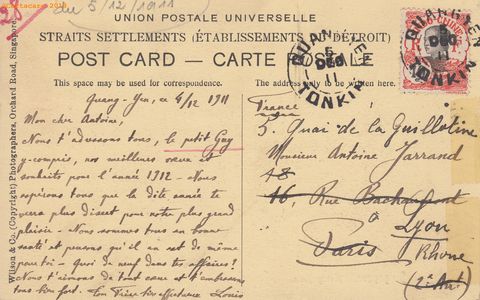 ©Cartacare 2018
du 5/12/1911
UNION POSTALE UNIVERSELLE
STRAITS SETTLEMENTS (ÉTABLISSEMENTS DU DÉTROIT)
POST CARD — CARTE POSTALE
This space may be used for correspondence.
The address only to be written here.
QUANG-YEN
5
DEC
11
TONKIN
QUANG-YEN
5
DEC
11
TONKIN
Wilson & Co. (Copyright) Photographers, Orchard Road, Singapore
Quang-Yen, ce 4/12 1911
Mon cher Antoine,
Nous t'adressons tous, le petit Guy
y-compris, nos meilleurs vœux et
souhaits pour l'année 1912 - Nous
espérons tous que la dite année te
verra plus disert pour notre plus grand
plaisir - Nous sommes tous en bonne
santé et pensons qu'il en est de même
pour toi - Quoi de neuf dans tes affaires?
Nous t'aimons de tout cœur et t'embrassons
tous bien fort. Ton frère bien affectueux Louis
France
5. Quai de la Guillotine
Monsieur Antoine Jarrand
18
16, Rue Bachaumont
à Lyon
Paris Rhône
(2e Arrt)